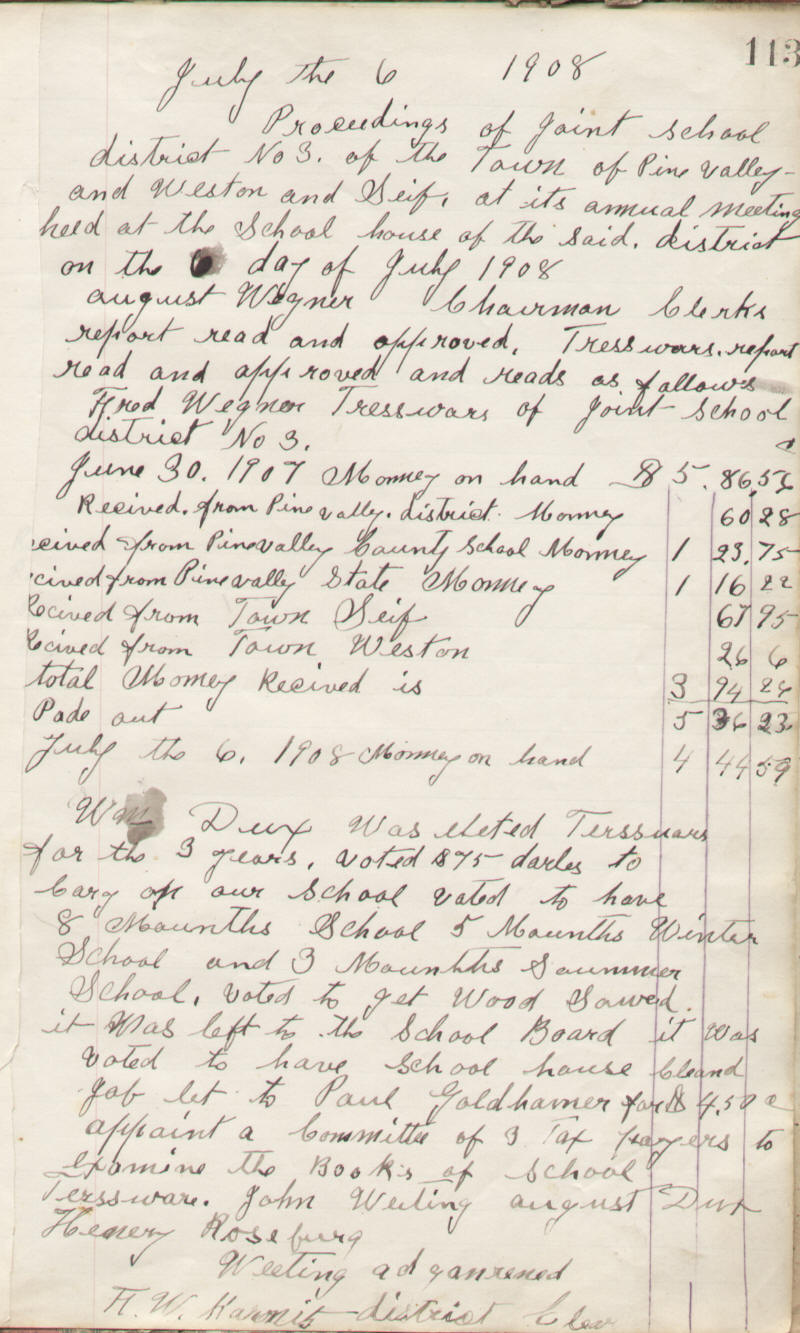 113
July the 6 1908
Proceedings of Joint School
district No 3. of the Town of Pine Valley-
and Weston and Seif, at its annual meeting
held at the School house of the said. district
on the 6 day of July 1908
august Wegner Chairman Clerks
report read and approved, Tresswars. report
read and approved and reads as follows
Fred Wegner Tresswars of Joint School
district No 3.
June 30. 1907 Monney on hand $ 5. 86.56
Recived. from Pine vally. district. Monney 60 28
ecived from Pinevalley County School Monney 1 23.75
cived from Pinevalley State Monney 1 16 22
Recived from Town Seif 67 95
Recived from Town Weston 26 6
total Monney Recived is 3 94 26
Pade out 5 36 23
July the 6. 1908 Monney on hand 4 44 59
Wm Dux Was eleted Terssuars
for the 3 years. voted $75 darles to
Cary on our School voted to have
8 Mounths School 5 Mounths Winter
School and 3 Mounthhs Saummer
School, voted to get Wood Sawed.
it Was left to the School Board it was
voted to have School house Cleand
Job let to Paul Goldhamer for $ 4.50 c
appaint a Committee of 3 Tax payers to
examine the Books of School
Terssware. John Weiting august Dux
Henery Roseburg
Meeting ad
H. W. district